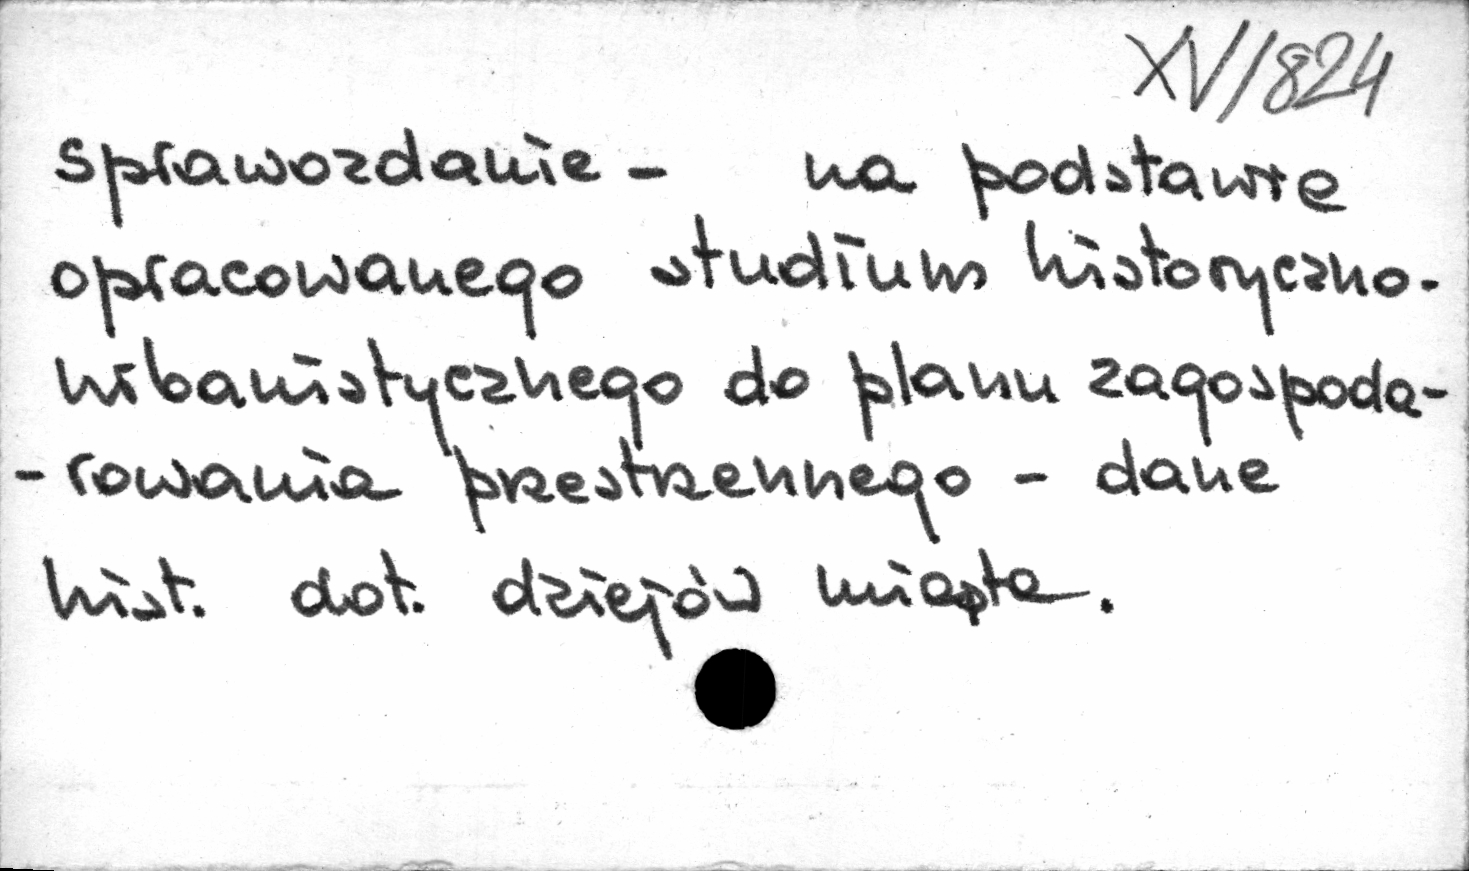 XV/824
sprawozdanie - na podstawie
opracowanego studium historyczno-
urbanistycznego do planu zagospoda-
- rowania przestrzennego - dane
hist. dot. dziejów miasta.